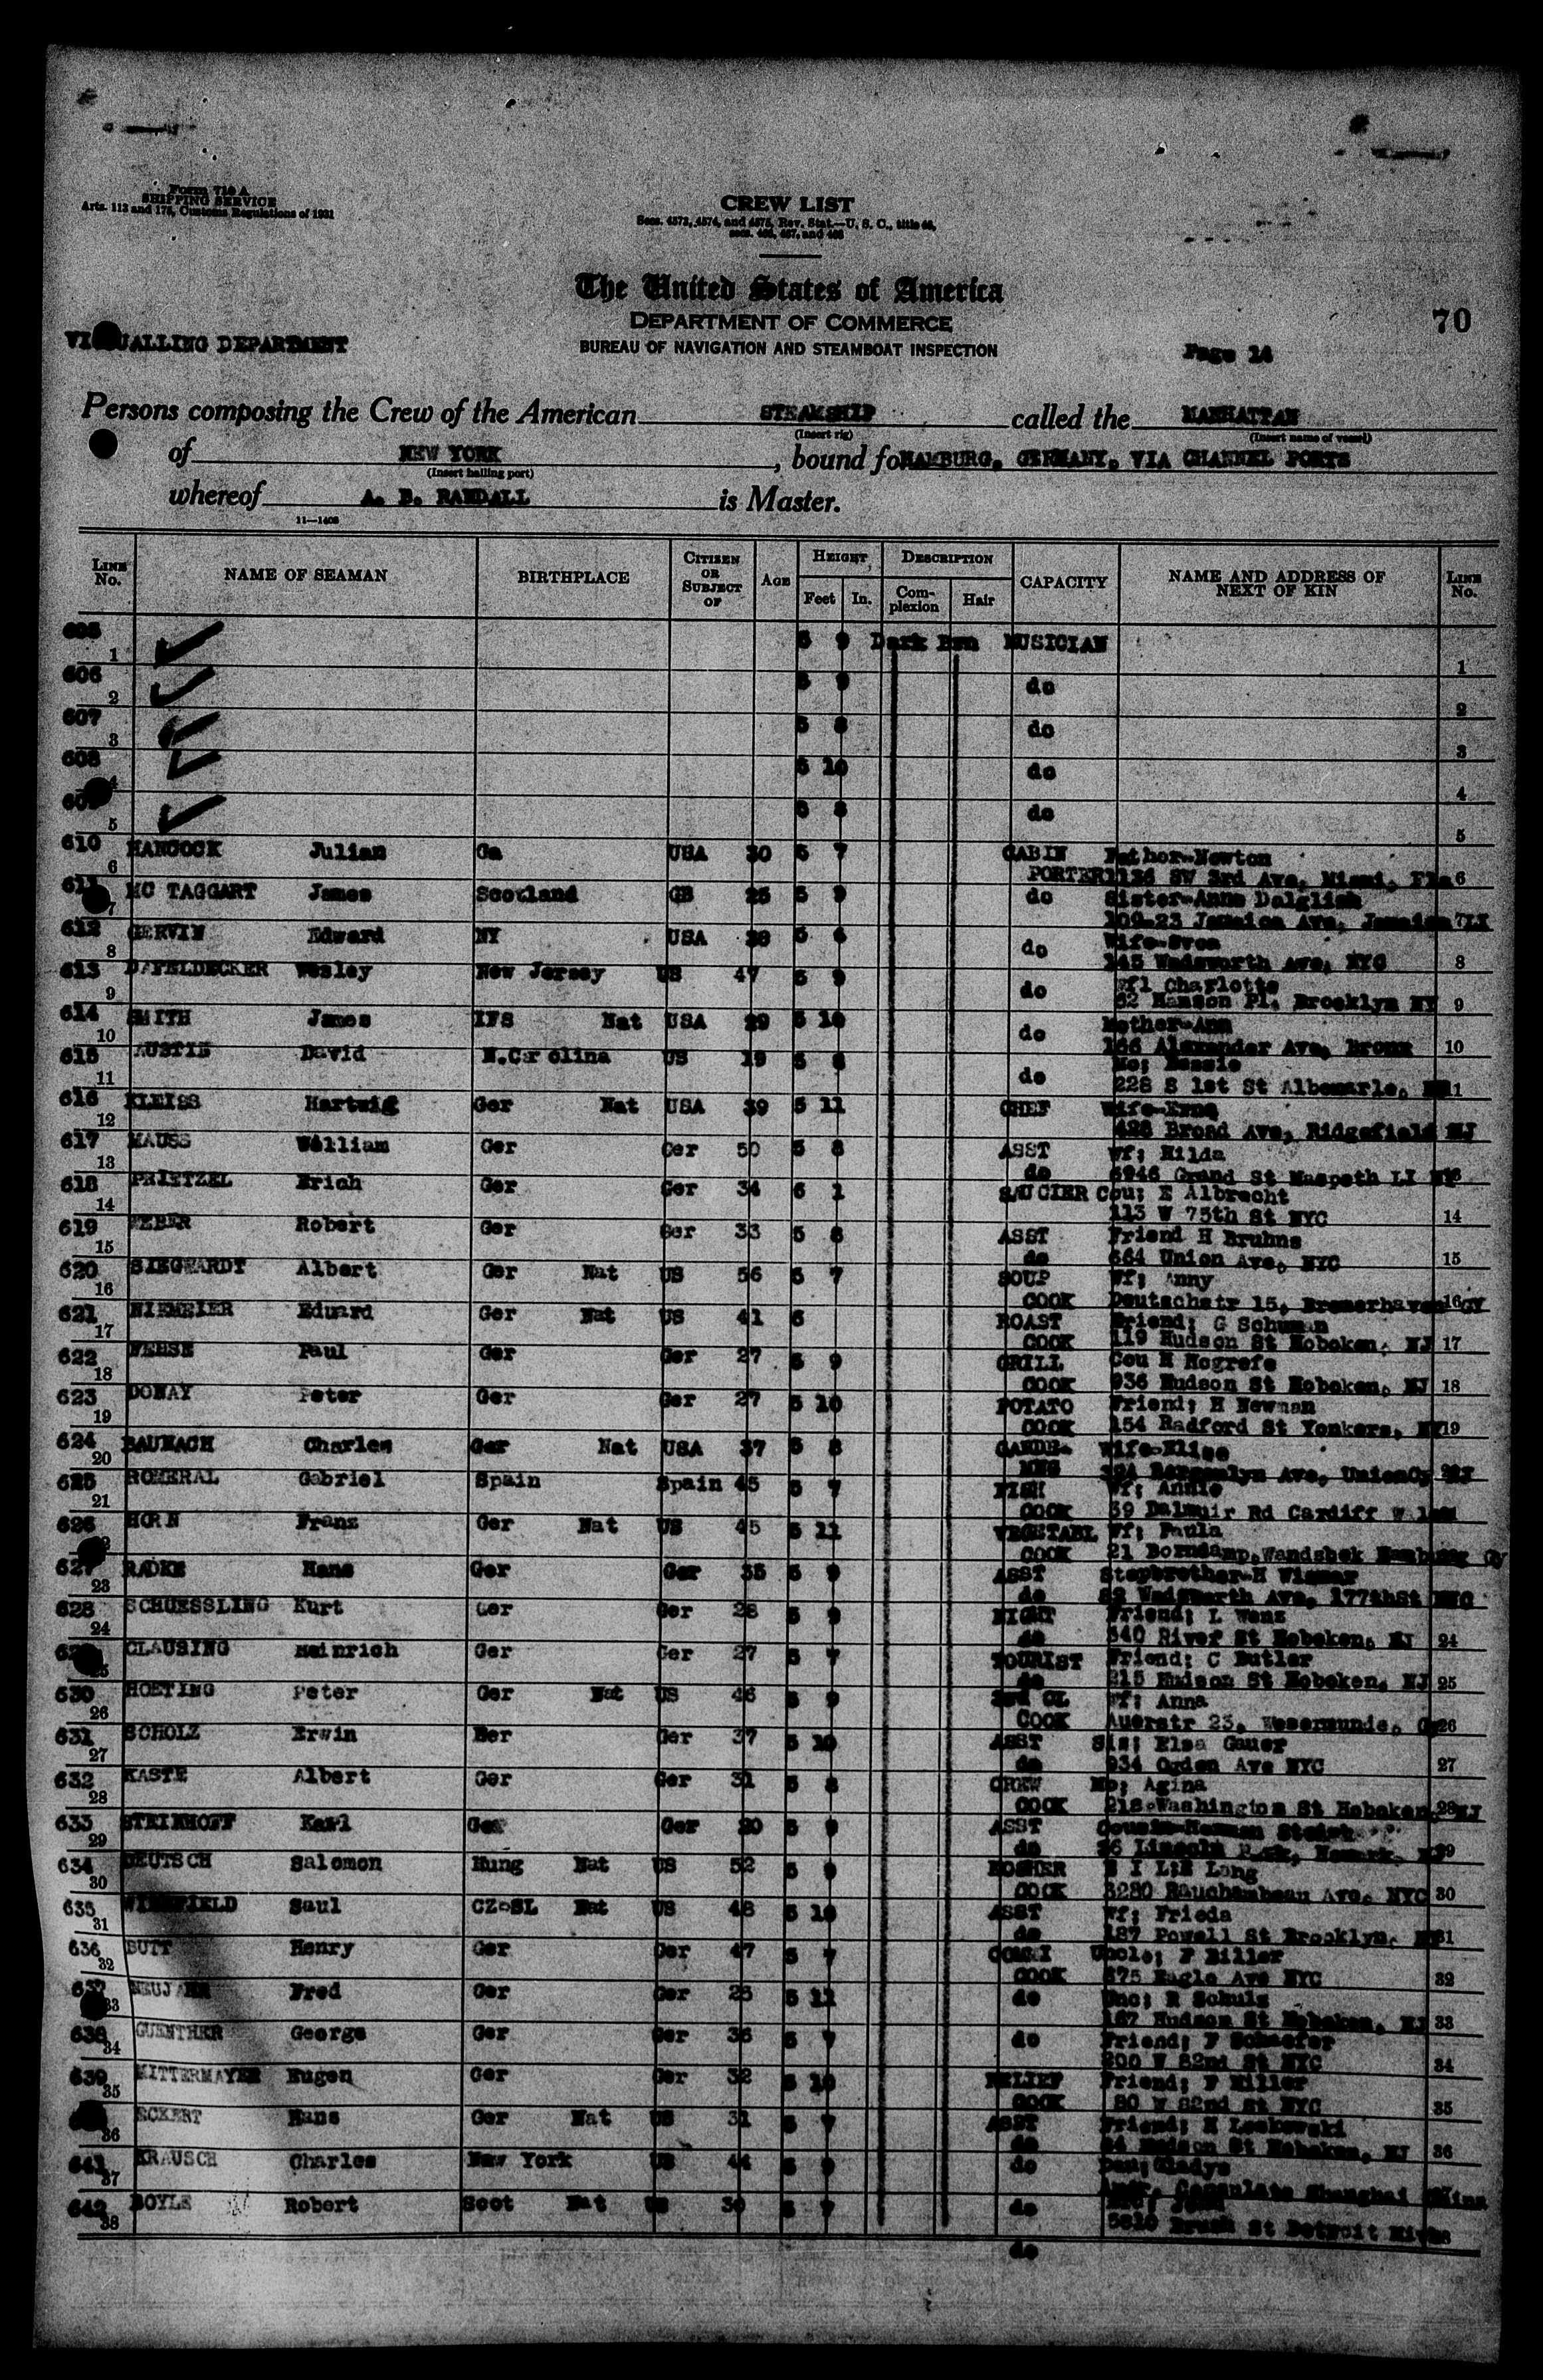 Form 710 A
SHIPPING SERVICE
Arts. 113 and 175, Customs Regulations of 1931
CREW LIST
Secs. 4573, 4574, and 4575, Rev. Stat.—U. S. C., title 46,
secs. 466, 467, and 468
The United States of America
DEPARTMENT OF COMMERCE
70
VICTUALLING DEPARTMENT
BUREAU OF NAVIGATION AND STEAMBOAT INSPECTION
Page 14
Persons composing the Crew of the American STEAMSHIP called the MANHATTAN
(Insert rig) (Insert name of vessel)
of NEW YORK, bound for HAMBURG, GERMANY, VIA CHANNEL PORTS
(Insert hailing port)
whereof A. B. RANDALL is Master.
11—1408
LINE No. NAME OF SEAMAN BIRTHPLACE CITIZEN OR SUBJECT OF AGE HEIGHT Feet In. DESCRIPTION Complexion Hair CAPACITY NAME AND ADDRESS OF NEXT OF KIN LINE No.
605 1 5 9 Dark Brn MUSICIAN 1
606 2 5 9 do 2
607 3 5 8 do 3
608 4 5 10 do 4
609 5 do 5
610 6 HANCOCK Julian Ga USA 30 5 7 CABIN Father-Newton
PORTER 1136 SW 3rd Ave, Miami, Fla 6
611 7 MC TAGGART James Scotland GB 25 5 9 do Sister-Anne Dalglish
109-23 Jamaica Ave, Jamaica 7 LI
612 8 GERVIN Edward NY USA 38 5 6 do Wife-Svea
145 Wadsworth Ave, NYC 8
613 9 DAFELDECKER Wesley New Jersey US 47 5 9 do Wf1 Charlotte
62 Hanson Pl. Brooklyn NY 9
614 10 SMITH James IFS Nat USA 29 5 10 do Mother-Ann
166 Alexander Ave, Bronx 10
615 11 AUSTIN David N.Carolina US 19 5 8 do Mo; Bessie
228 S 1st St Albemarle, 11
616 12 KLEISS Hartwig Ger Nat USA 39 5 11 CHEF Wife-Erna
428 Broad Ave, Ridgefield NJ
617 13 MAUSS William Ger Ger 50 5 8 ASST Wf; Hilda
do 5946 Grand St Maspeth LI
618 14 PRIETZEL Erich Ger Ger 34 6 1 SAUCIER Cou; E Albrecht
113 W 75th St NYC 14
619 15 WEBER Robert Ger Ger 33 5 8 ASST Friend H Bruhns
do 664 Union Ave, NYC 15
620 16 SIEGHARDT Albert Ger Nat US 56 5 7 SOUP Wf; Anny
COOK Deutschstr 15, Bremerhaven 16 GY
621 17 NIEMEIER Eduard Ger Nat US 41 6 ROAST Friend; G Schuman
COOK 119 Hudson St Hoboken, NJ 17
622 18 WEHSE Paul Ger Ger 27 5 9 GRILL Cou H Hogrefe
COOK 936 Hudson St Hoboken, NJ 18
623 19 DONAY Peter Ger Ger 27 5 10 POTATO Friend; H Newman
COOK 154 Radford St Yonkers, NY 19
624 20 BAUMACH Charles Ger Nat USA 37 5 8 GARDE- Wife-Elise
MNG Bergenlyn Ave, UnionCy NJ
625 21 ROMERAL Gabriel Spain Spain 45 5 7 FISH Wf; Annie
COOK 39 Dalmuir Rd Cardiff
626 HORN Franz Ger Nat US 45 5 11 VEGETABL Wf; Paula
COOK 21 Borndamp, Wandsbek Hamburg Gy
627 23 RADKE Hans Ger Ger 35 5 9 ASST Stepbrother-H Wismar
do Wadsworth Ave, 177thSt NYC
628 24 SCHUESSLING Kurt Ger Ger 28 5 9 NIGHT Friend; L Wenz
do 340 River St Hoboken, NJ 24
25 CLAUSING Heinrich Ger Ger 27 5 7 TOURIST Friend; C Butler
do 215 Hudson St Hoboken, NJ 25
630 26 HOETING Peter Ger Nat US 46 5 9 3rd CL Wf; Anna
COOK Auerstr 23, Wesermunde, 26
631 27 SCHOLZ Erwin Ber Ger 37 5 10 ASST Sis; Elsa Gauer
do 934 Ogden Ave NYC 27
632 28 KASTE Albert Ger Ger 31 5 8 CREW Mo; Agina
COOK 218-Washington St Hoboken, 28 NJ
633 29 STEINHOFF Karl Ger Ger 20 5 9 ASST Cousin-Herman
do 36 Lincoln Park, Newark,
634 30 DEUTSCH Salomon Hung Nat US 52 5 9 KOSHER Lang
COOK 3280 Ave, NYC 30
635 31 Saul CZ-SL Nat US 48 5 10 ASST Wf; Frieda
do 187 Powell St Brooklyn, 31
636 32 BUTT Henry Ger Ger 47 5 7 COMMI Uncle; F Biller
COOK 875 Eagle Ave NYC 32
637 33 NEUJAHR Fred Ger Ger 25 5 11 do Unc; R Schulz
167 Hudson St Hoboken, NJ 33
638 34 GUENTHER George Ger Ger 36 5 7 do Friend; F Schaefer
200 W 82nd St NYC 34
639 35 MITTERMAYER Eugen Ger Ger 32 5 10 RELIEF Friend; F Miller
COOK W 82nd St NYC 35
36 ECKERT Hans Ger Nat US 31 5 7 ASST Friend; H Leskowski
do Hudson St Hoboken, NJ 36
641 37 KRAUSCH Charles New York US 44 5 9 do Gladys
Amer. Consulate Shanghai China
642 38 BOYLE Robert Scot Nat US 30 5 7 do
5810 Brush St Detroit
do